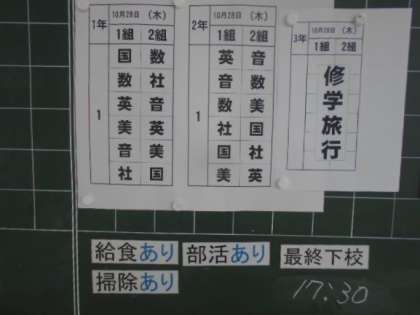 1年 10月28日 (木)
1組 2組
1
国 数
数 社
英 音
美 英
音 美
社 国
2年 10月28日 (木)
1組 2組
1
英 音
音 数
数 美
社 国
国 社
美 英
3年 10月28日 (木)
1組 2組
修学旅行
給食あり 部活あり 最終下校
掃除あり 17:30